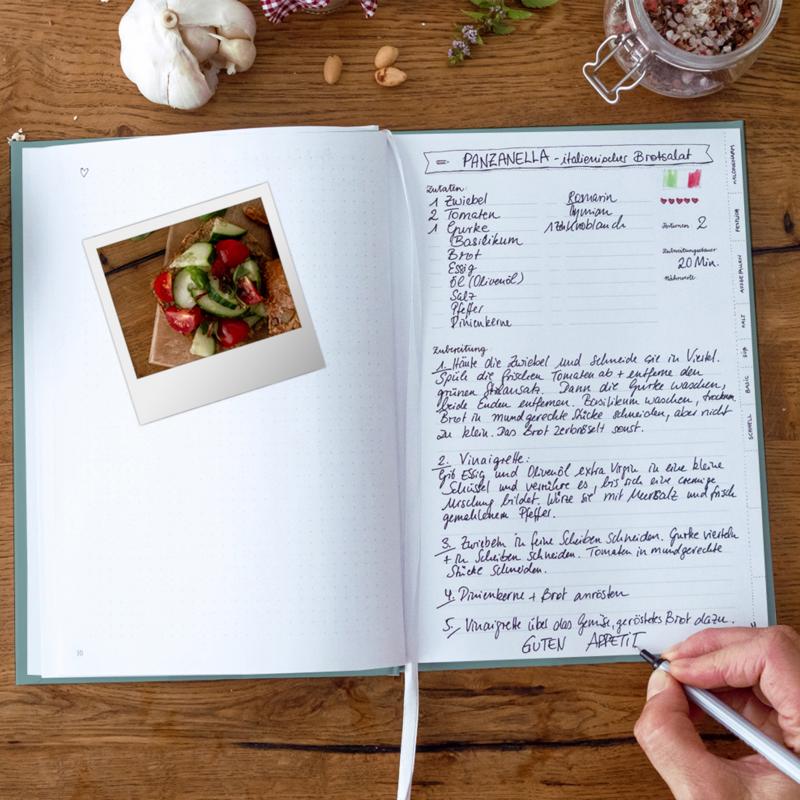 PANZANELLA - italienischer Brotsalat
Zutaten:
1 Zwiebel
2 Tomaten
1 Gurke
Basilikum
Brot
Essig
Öl (Olivenöl)
Salz
Pfeffer
Pinienkerne
Rosmarin
Thymian
1 Zeh Knoblauch
Portionen 2
Zubereitungsdauer
20 Min.
Nährwerte
Zubereitung
1. Häute die Zwiebel und schneide sie in Viertel.
Spüle die frischen Tomaten ab + entferne den
grünen Strunkansatz. Dann die Gurke waschen,
beide Enden entfernen. Basilikum waschen, trocknen
Brot in mundgerechte Stücke schneiden, aber nicht
zu klein. Das Brot zerbröselt sonst.
2. Vinaigrette:
Gib Essig und Olivenöl extra Virgin in eine kleine
Schüssel und verrühre es, bis sich eine cremige
Mischung bildet. Würze sie mit Meersalz und frisch
gemahlenem Pfeffer.
3. Zwiebeln in feine Scheiben schneiden. Gurke vierteln
+ in Scheiben schneiden. Tomaten in mundgerechte
Stücke schneiden.
4. Pinienkerne + Brot anrösten
5. Vinaigrette über das Gemüse, geröstetes Brot dazu.
GUTEN APPETIT
FESTLICH
SALZ
SÜß
BASIC
SCHNELL
10